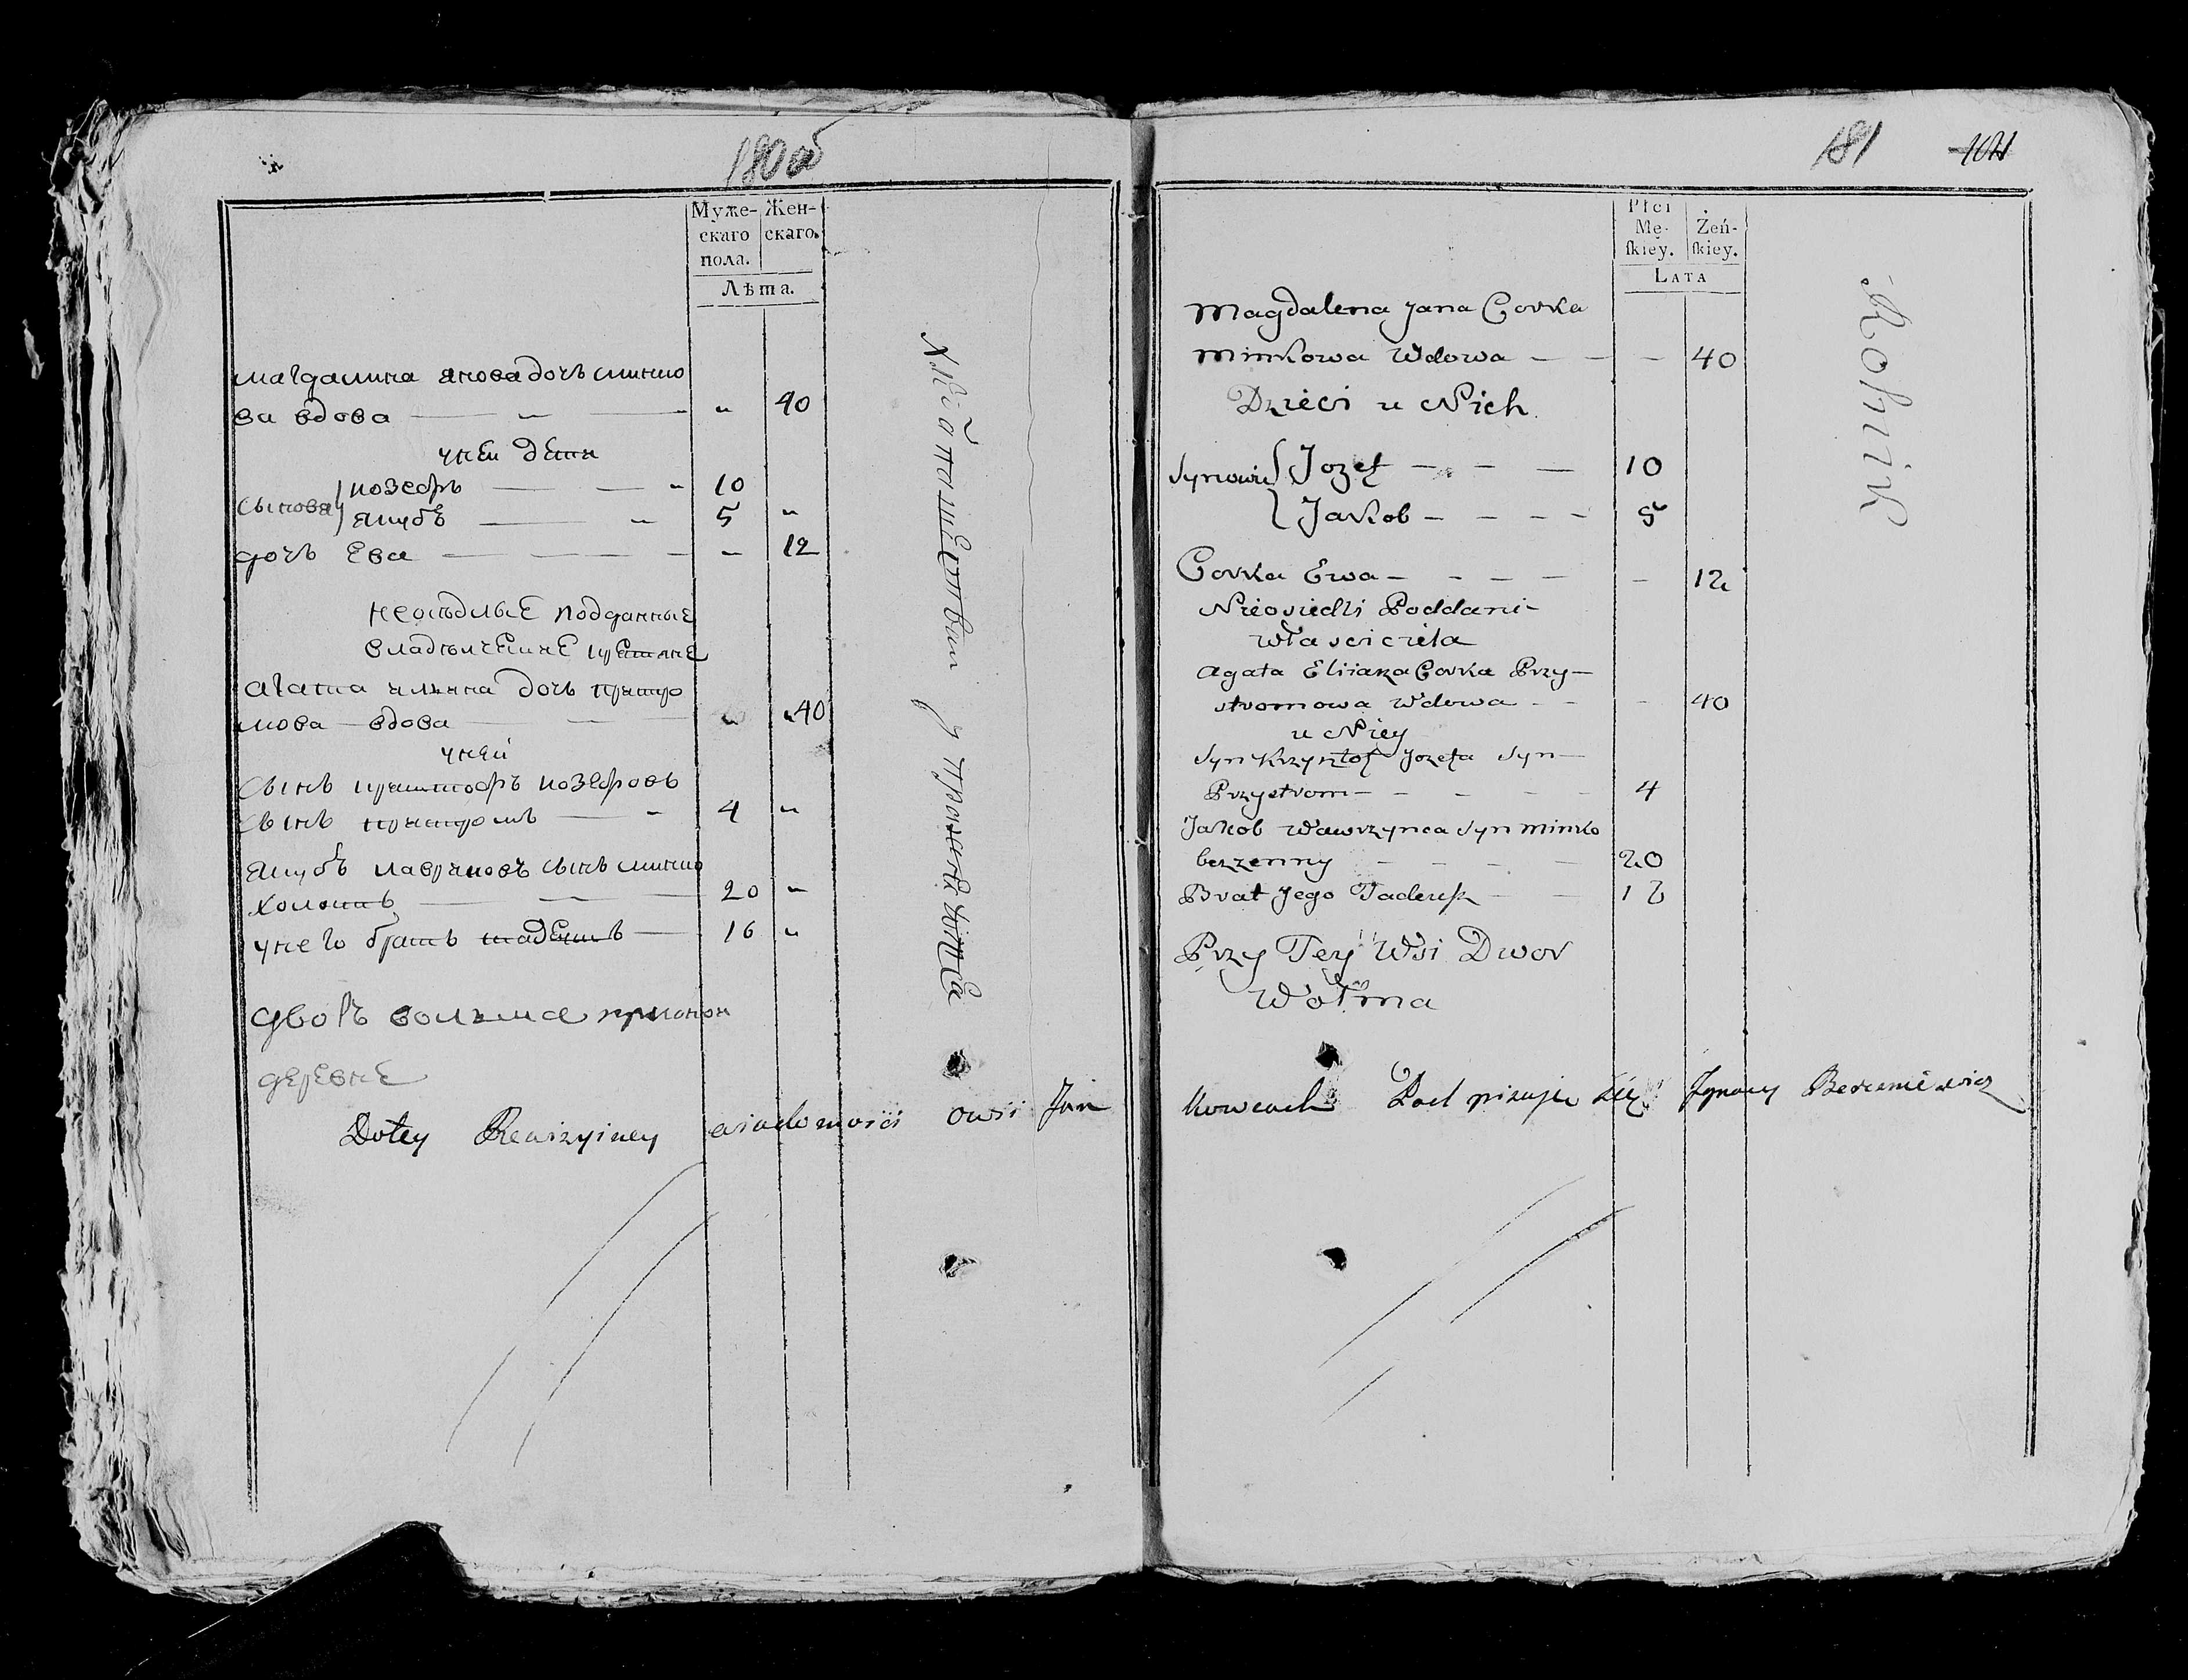 180 об
Муже-
скаго
пола.
Жен-
скаго.
Лѣта.
магдалина янова дочъ минко
ва вдова — „ — „ 40
унеи дети
сыновя
иозефъ — — „ 10
якубъ — „ 5 „
дочъ Ева — — — „ 12
неоседлые подданные
владельческие крестяне
агата ильина дочъ пристро
мова вдова — — „ „ 40
уней
сынъ криштофъ иозефовъ
сынъ пристромъ — „ 4 „
якубъ лавриновъ сынъ минко
холостъ — — 20 „
унего братъ тадеушъ — 16 „
дворъ волма прионой
деревне
хлебопашествии упражняются
Dotey Rewizyiney wiadomosci owsi Jan
181
Płci
Mę-
ſkiey.
Żeń-
ſkiey.
LATA
Magdalena Jana Corka
Minkowa Wdowa — — — 40
Dzieci u Nich
Synowie
Jozef — — — 10
Jakob — — — — 5
Corka Ewa — — — — — 12
Nieosiedli Poddani
własciciela
Agata Eliiasza Corka Przy—
stromowa Wdowa — — — 40
u Niey
Syn Krzysztof Jozefa Syn—
Przystrom — — — — — 4
Jakob Wawrzynca Syn Minko
bezzenny — — — — 20
Brat Jego Tadeusz — — 16
Przy Tey Wsi Dwor
Wołma
Rolnik
kowcach Pod pisuje się Ignacy